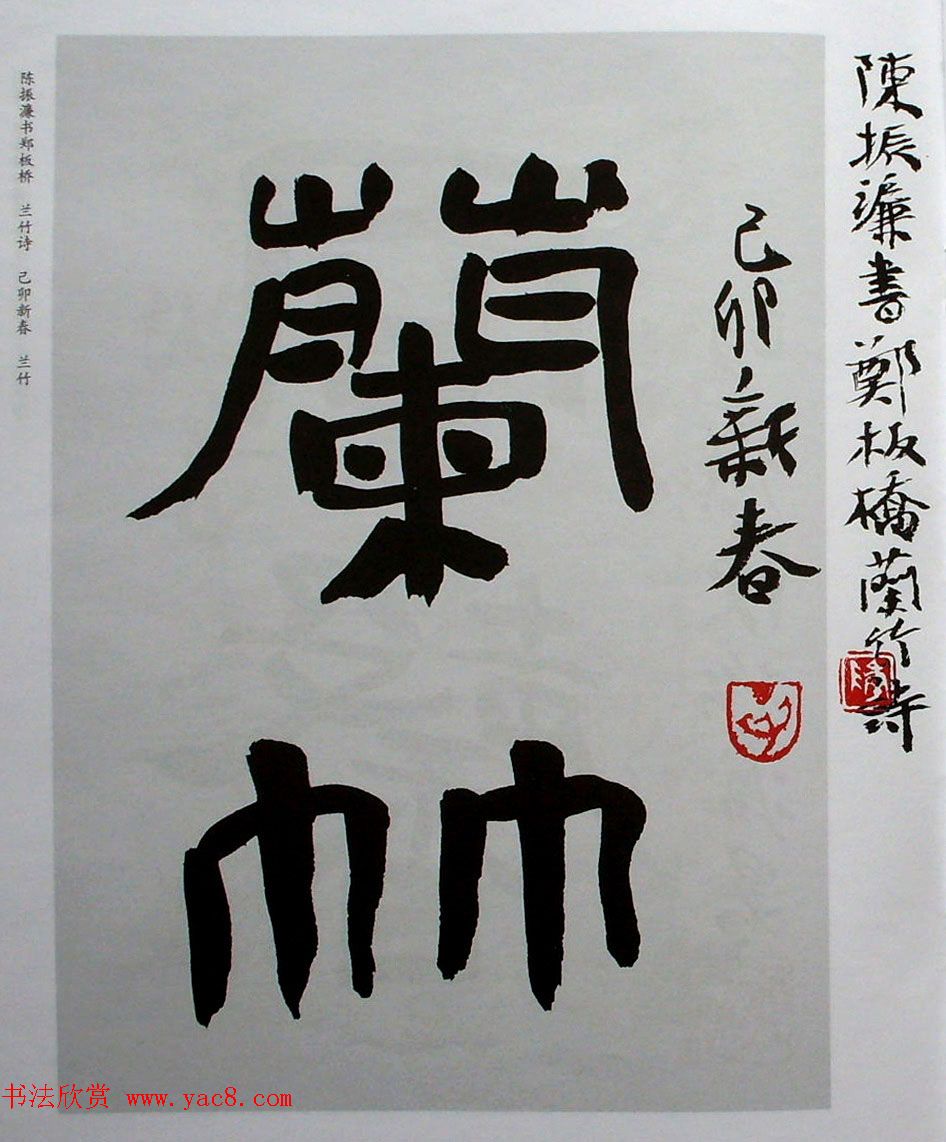 陳振濂書鄭板橋蘭竹詩
己卯新春
蘭竹
陈振濂书郑板桥 兰竹诗 己卯新春 兰竹
书法欣赏 www.yac8.com